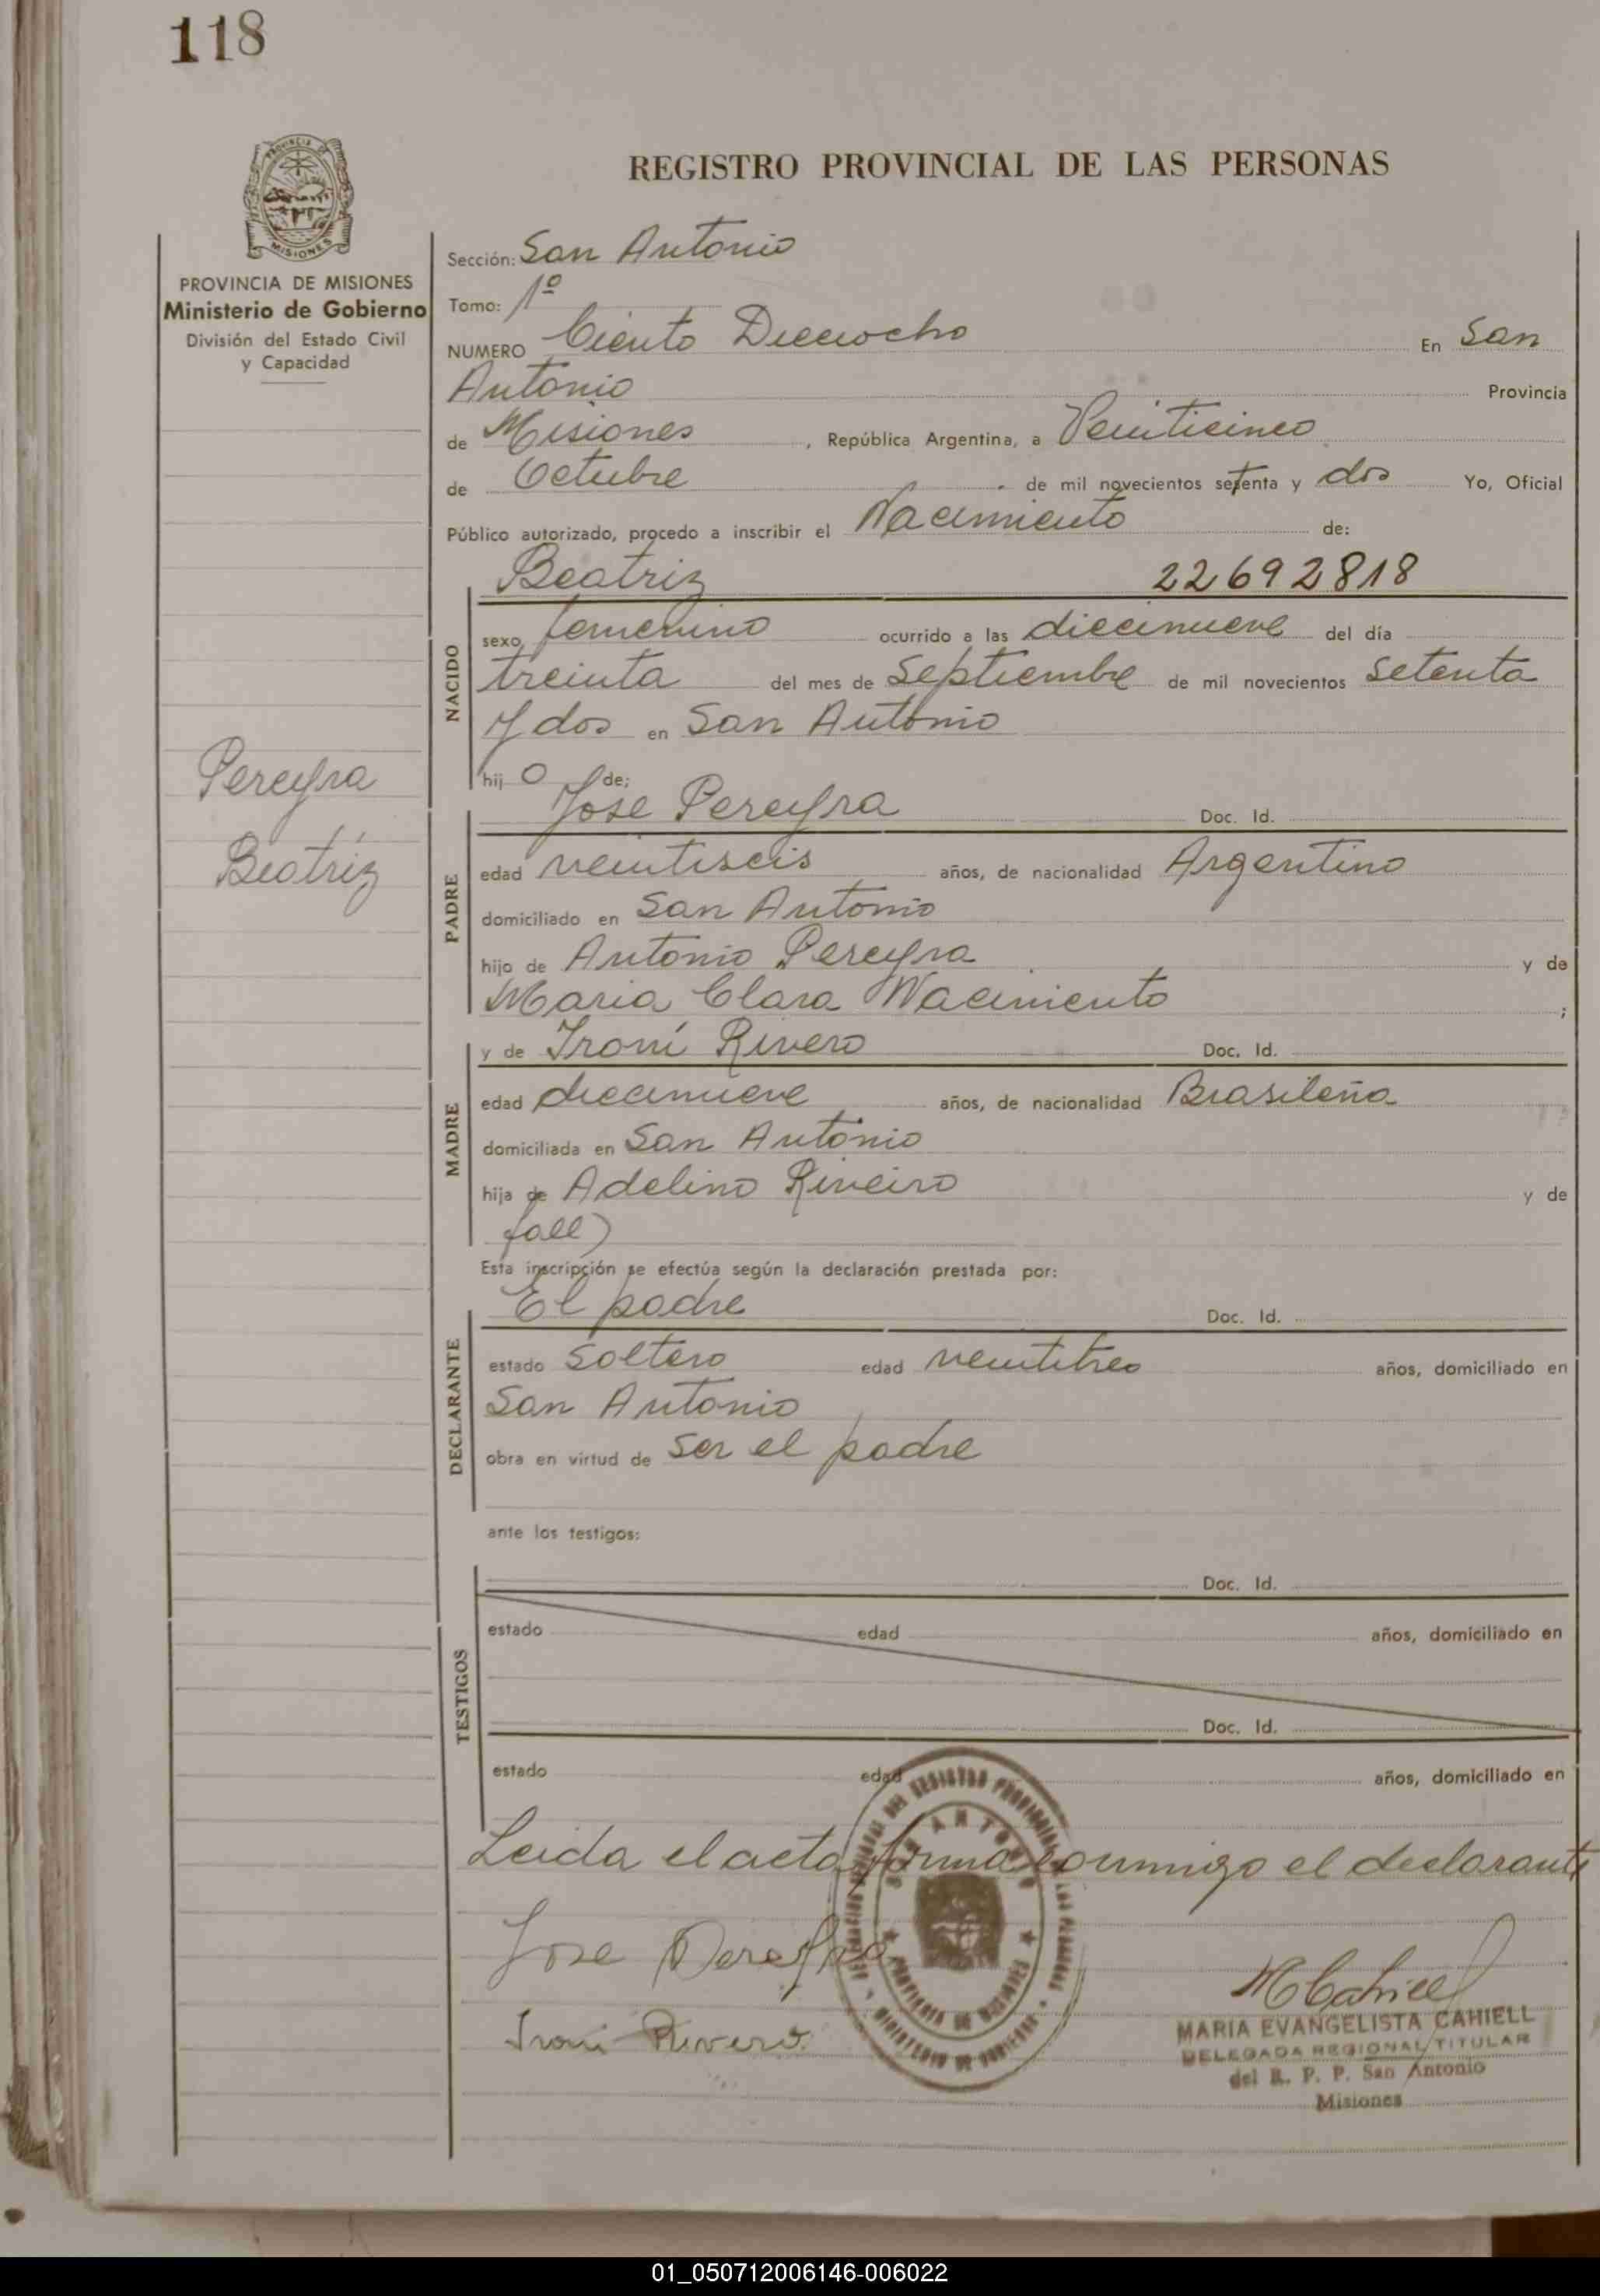 118
REGISTRO PROVINCIAL DE LAS PERSONAS
PROVINCIA DE MISIONES
Ministerio de Gobierno
División del Estado Civil
y Capacidad
Sección: San Antonio
Tomo: 1º
NUMERO Ciento Dieciocho En San
Antonio Provincia
de Misiones, República Argentina, a Veinticinco
de Octubre de mil novecientos setenta y dos Yo, Oficial
Público autorizado, procedo a inscribir el Nacimiento de:
Beatriz 22692818
NACIDO
sexo femenino ocurrido a las diecinueve del día
treinta del mes de Septiembre de mil novecientos setenta
y dos en San Antonio
hij o de:
Pereyra
Beatriz
PADRE
Jose Pereyra Doc. Id.
edad veintiseis años, de nacionalidad Argentino
domiciliado en San Antonio
hijo de Antonio Pereyra y de
Maria Clara Nacimiento ;
MADRE
y de Ironi Rivero Doc. Id.
edad diecinueve años, de nacionalidad Brasileña
domiciliada en San Antonio
hija de Adelino Riveiro y de
fall)
Esta inscripción se efectúa según la declaración prestada por:
DECLARANTE
El padre Doc. Id.
estado Soltero edad veintitres años, domiciliado en
San Antonio
obra en virtud de ser el padre
ante los testigos:
TESTIGOS
Doc. Id.
estado edad años, domiciliado en
Doc. Id.
estado edad años, domiciliado en
Leida el acta firma conmigo el declarante
Jose Pereyra
Ironi Rivero
SAN ANTONIO
PROVINCIA DE MISIONES
MINISTERIO DE GOBIERNO
MCahiell
MARIA EVANGELISTA CAHIELL
DELEGADA REGIONAL TITULAR
del R. P. P. San Antonio
Misiones
01_050712006146-006022